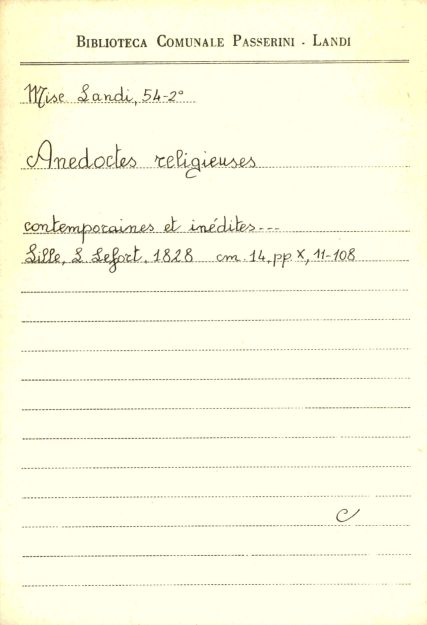 BIBLIOTECA COMUNALE PASSERINI - LANDI
Misc Landi, 54-2°
Anedoctes religieuses
contemporaines et inédites---
Lille, L Lefort, 1828 cm. 14, pp. X, 11-108
C